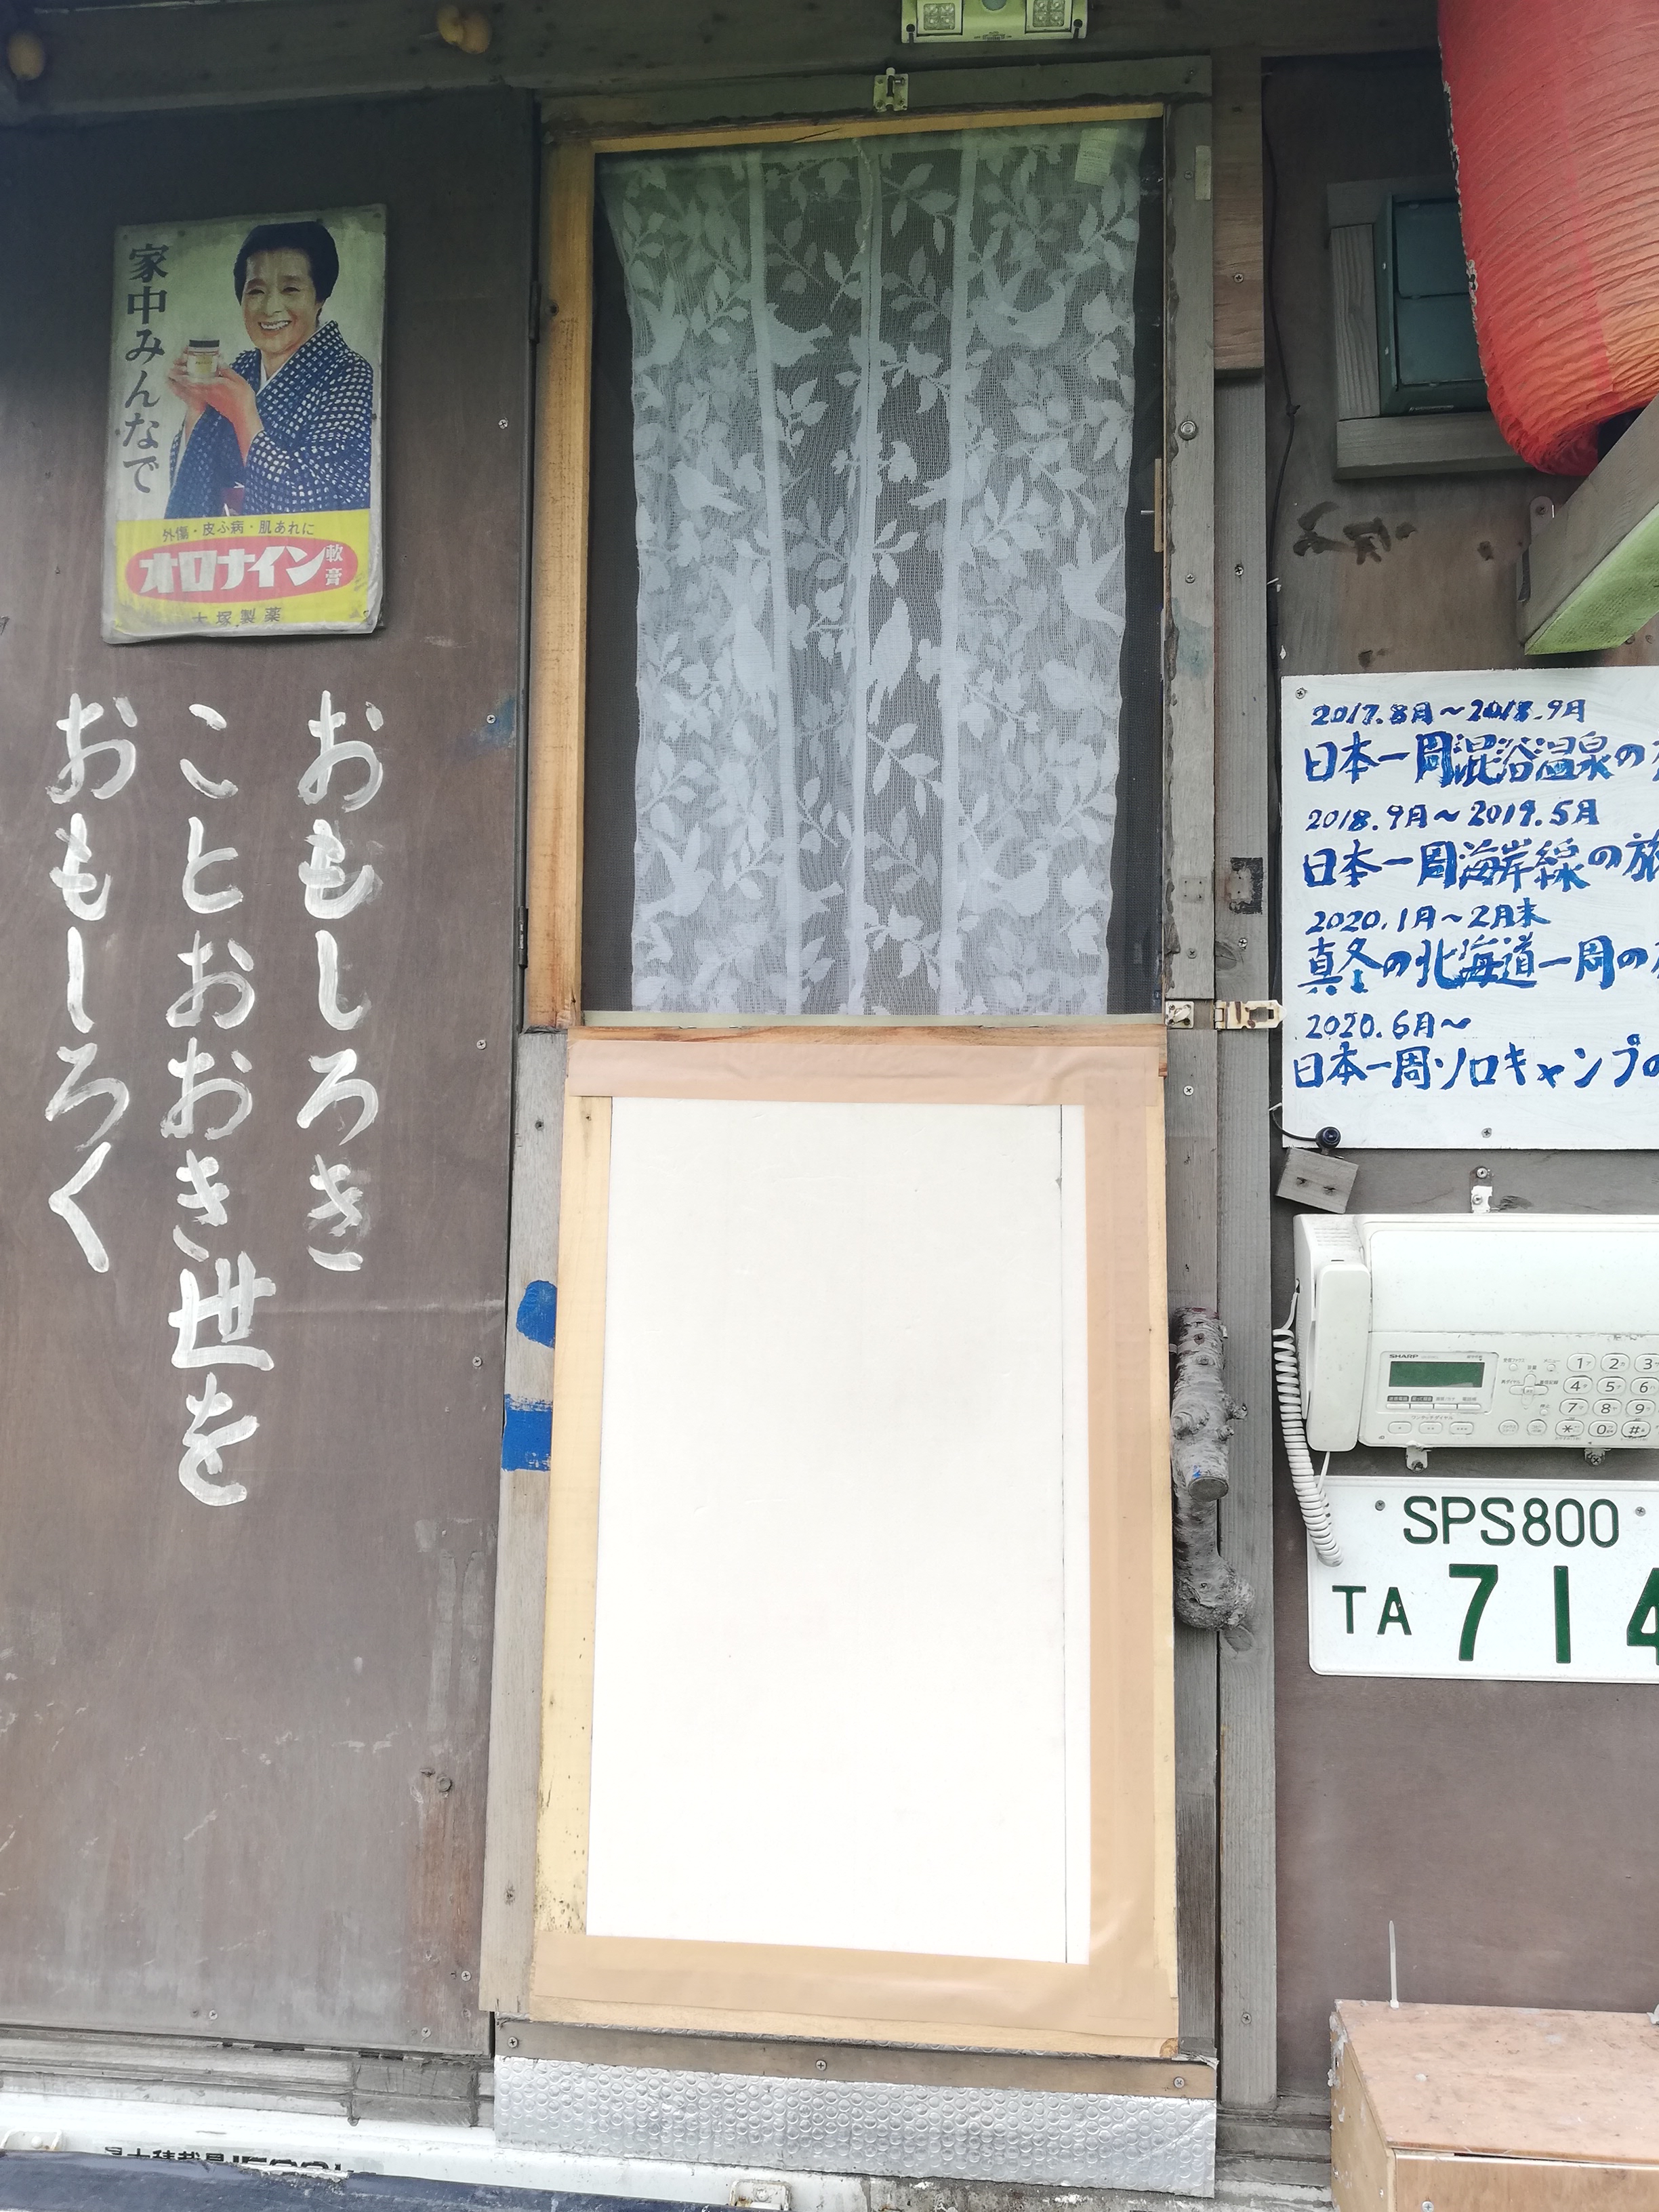 家中みんなで
外傷・皮ふ病・肌あれに
オロナイン軟膏
大塚製薬
おもしろき
ことおおき世を
おもしろく
2017.8月～2018.9月
日本一周混浴温泉の
2018.9月～2019.5月
日本一周海岸線の旅
2020.1月～2月末
真冬の北海道一周の
2020.6月～
日本一周ソロキャンプの
SHARP
1 2 3
4 5 6
7 8 9
* 0 #
SPS800
TA 714
最大積載量